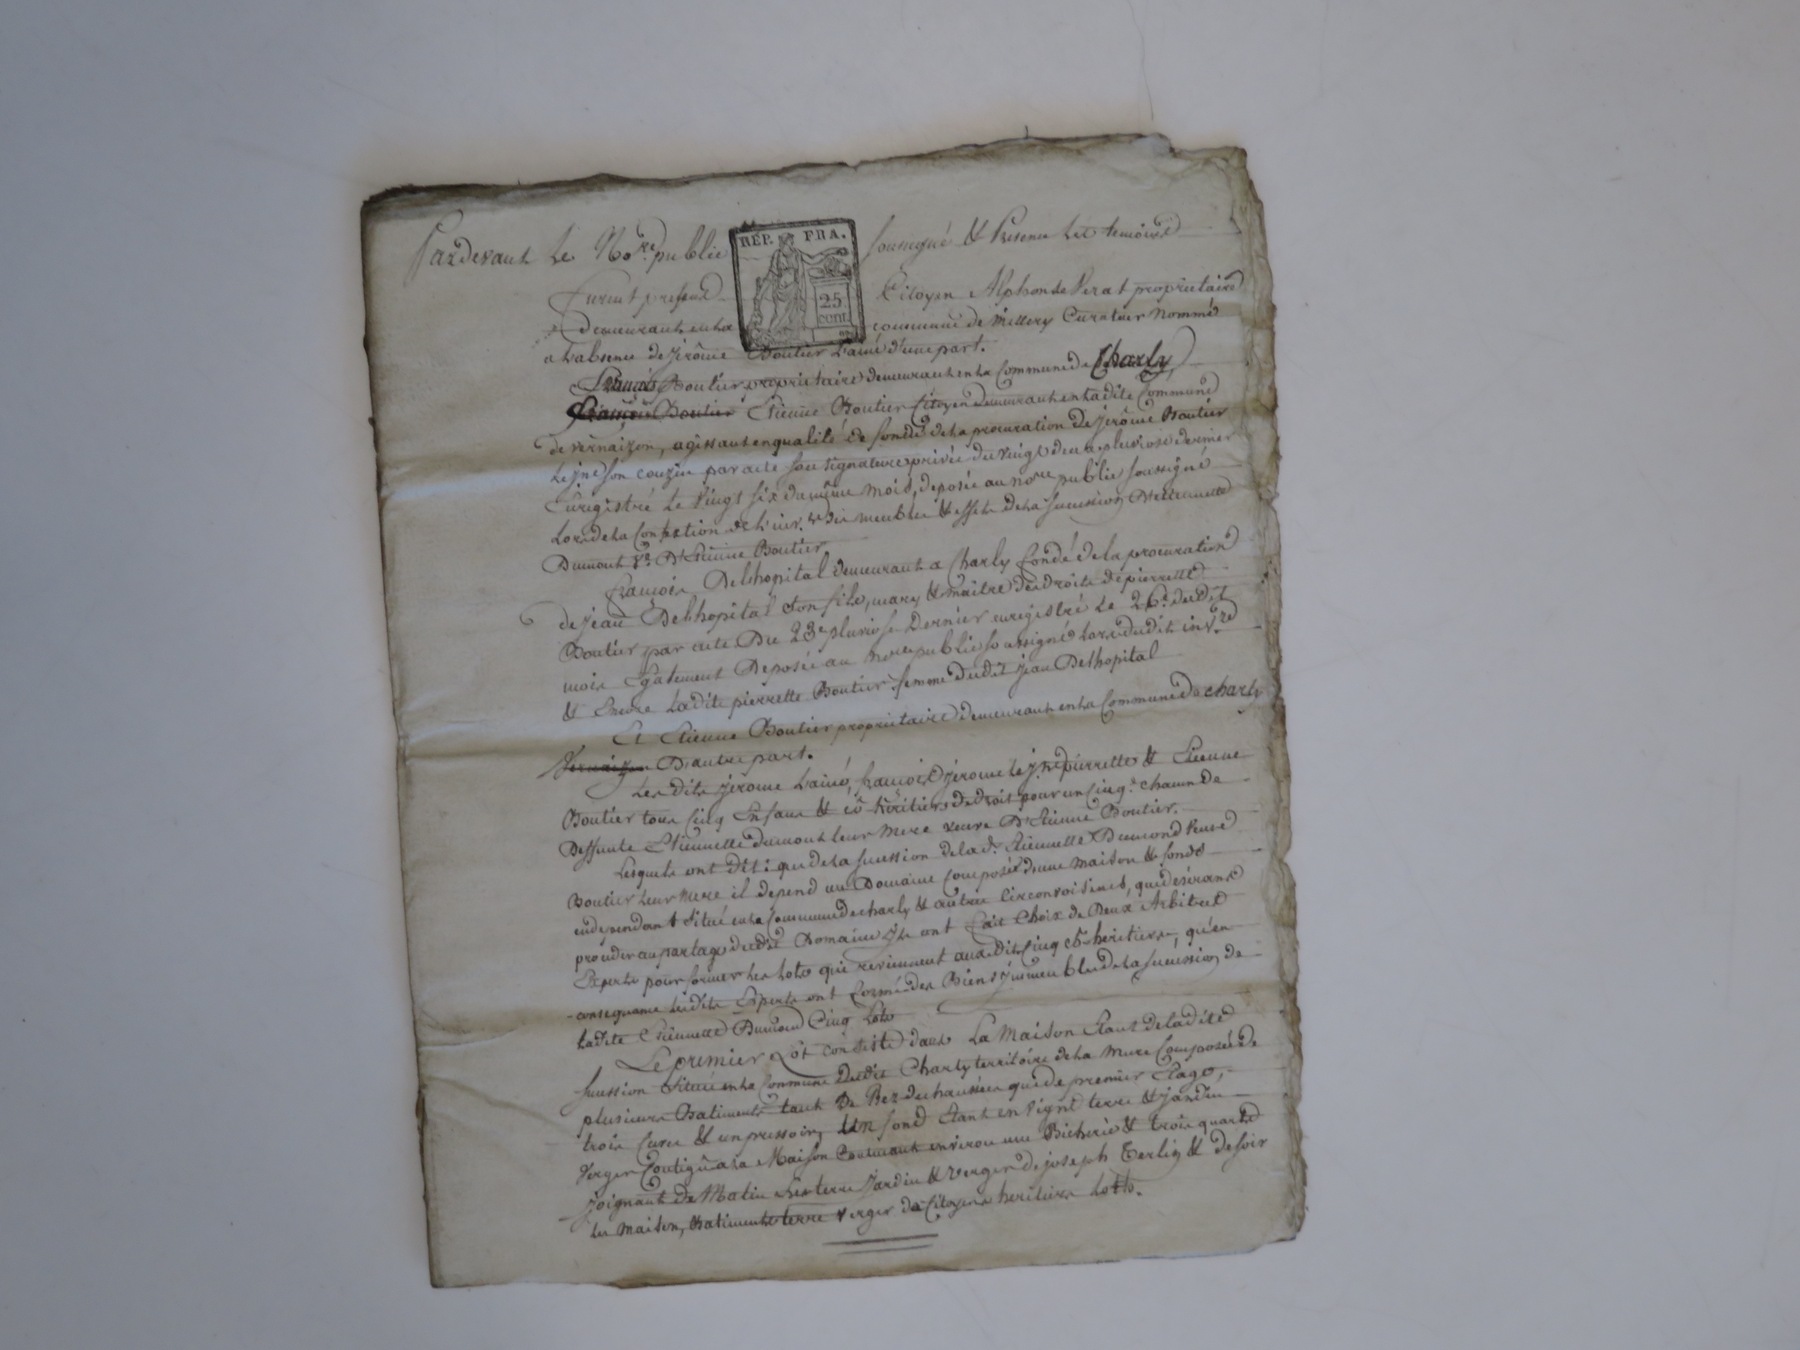 Pardevant Le No.re public soussigné & Presence Les temoins
REP. FRA.
25 cent.
Furent presens Citoyen Alphonse Verat proprietaire
Demeurant en la commune de Millery Curateur Nommé
a L'absence de jérôme Boutier L'ainé d'une part.
François Boutier proprietaire demeurant en la Commune de Charly,
François Boutier Etienne Boutier Citoyen Demeurant en ladite Commune
de vernaizon, agissant en qualité de fondé de la procuration de jérôme Boutier
Le jne son couzin par acte sous signature privée du vingt deux pluviose dernier
Enregistré Le Vingt six du même mois, deposée au no.re public soussigné
Lors de La Confection de L'inv.re des meubles & effets de la sucession D'Etiennette
Dumont V.e D'Etienne Boutier
François Delhopital demeurant a Charly fondé de la procuration
de jean Delhopital son fils, mary & maitre des Droits de pierrette
Boutier par acte Du 23e pluviose Dernier enregistré Le 26e dudit
mois Egalement Deposée au No.re public soussigné Lors dudit inv.re
& Encore Ladite pierrette Boutier femme dudit jean Delhopital
Et Etienne Boutier proprietaire demeurant en la Commune de charly
Vernaizon D'autre part.
Les dits jérome L'ainé, francois, jérome Le jne pierrette & Etienne
Boutier tous Cinq Enfans & co héritiers de Droit pour un Cinq.e chacun de
Deffunte Etiennette dumont leur Mere veuve D'Etienne Boutier.
Lesquels ont dit: que de la sucession de lad.e Etiennette Dumond Veuve
Boutier leur Mere il depend un Domaine composée d'une maison & fonds
en dependant situé en la Commune de charly & autres Circonvoisines, que desirant
proceder au partage dudit Domaine ils ont fait Choix de Deux Arbitres
Experts pour former les lots qui reviennent auxdits Cinq co heritiers, qu'en
consequance lesdits Experts ont formé des Biens immeubles de la sucession de
Ladite Etiennette Dumond Cinq Lots
Le premier Lot consiste dans La Maison Etant de ladite
sucession Située en la Commune dudit Charly territoire de la Mure Composée de
plusieurs Batiments tant De Rez de chaussée que de premier Etage,
trois Cuves & un pressoir, Un fond Etant en Vigne terre & jardin
Verger Contigu a la Maison Contenant environ une Bicherée & trois quarts
joignant De Matin Les terre jardin & verger de joseph Terlin & de soir
les Maison, Batiments terre verger de Citoyens heritiers